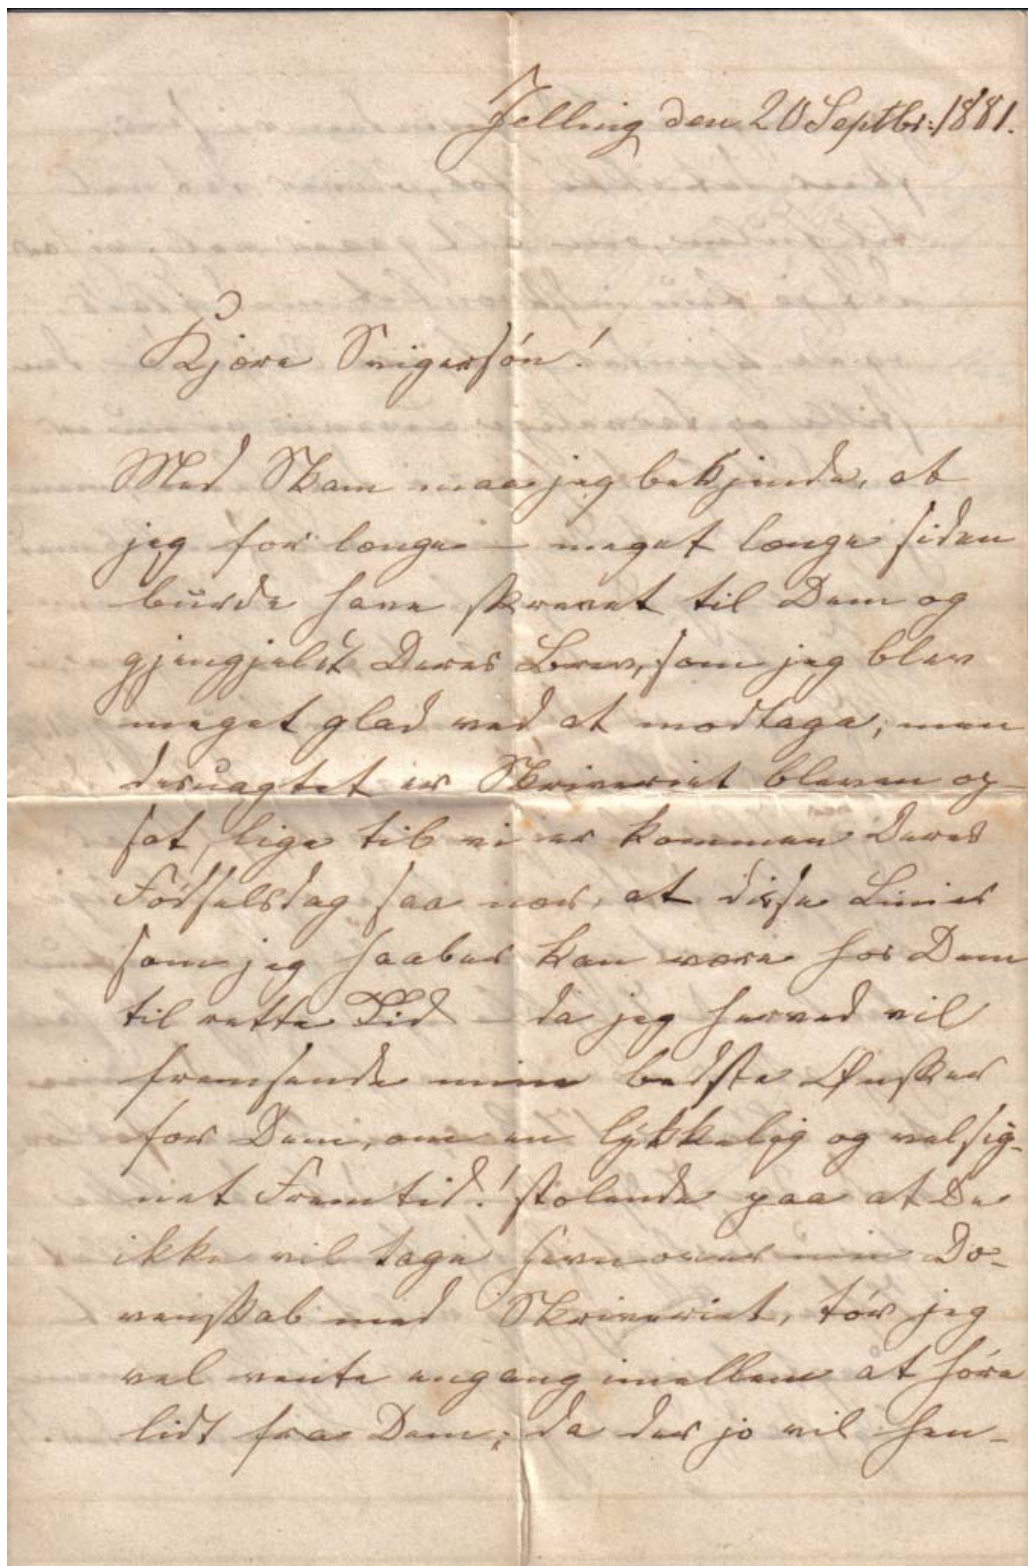 Jelling den 20 Septbr: 1881.
Kjære Svigersón!
Med Skam maa jeg bekjende, at
jeg for længe — meget længe siden
burde have skrevet til Dem og
gjengjeldt Deres Brev, som jeg blev
meget glad ved at modtage; men
desuagtet er Skriveriet bleven op-
sat, lige til vi er kommen Deres
Fódselsdag saa nær, at disse Linier
som jeg haaber kan være hos Dem
til rette Tid — da jeg herved vil
fremsende mine bedste Ønsker
for Dem, om en lykkelig og velsig-
net Fremtid! stolende paa at De
ikke vil tage Hevn over min Do-
venskab med Skriveriet, tór jeg
vel vente engang imellem at hóre
lidt fra Dem; da der jo vil hen-